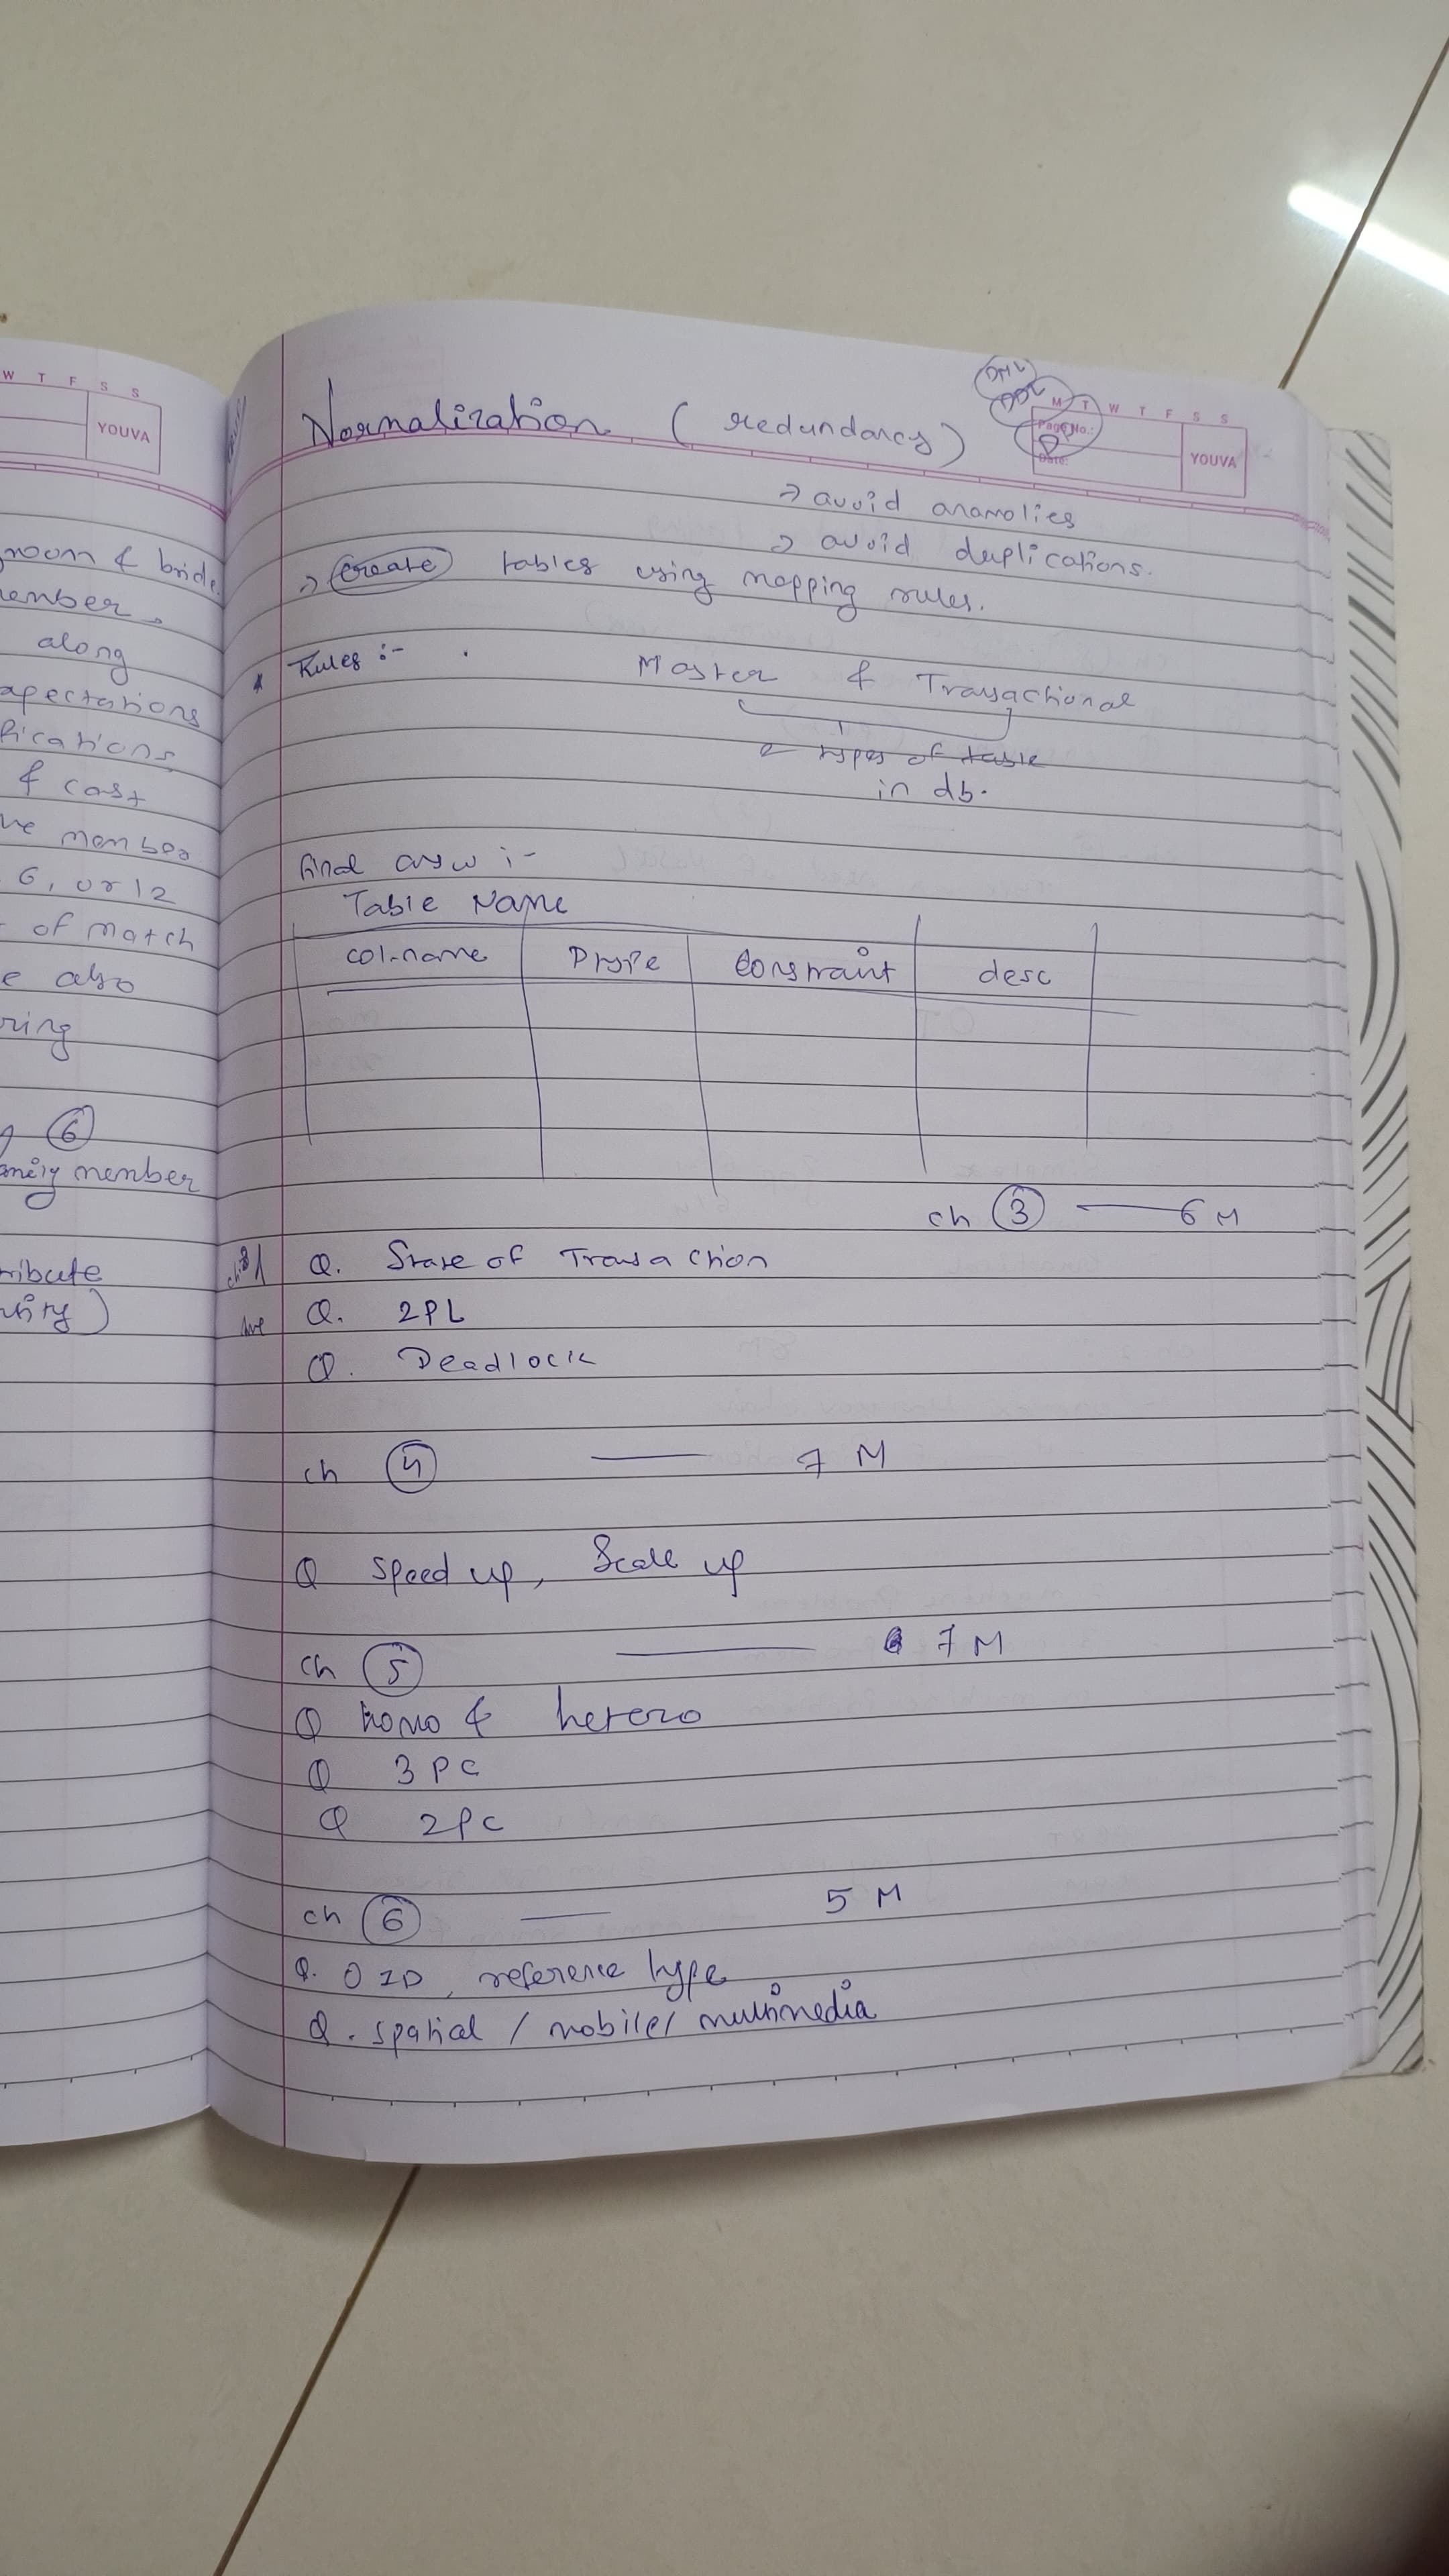 W T F S S
YOUVA
room & bride
ember,
along
apectations
fications
& cast
ve member
6, or 12
of match
e also
ring
6
amily member
ribute
Normalization ( redundancy )
DML
DDL
M T W T F S S
Page No.:
Date:
YOUVA
→ avoid anamolies
→ avoid duplications.
→ Create tables using mapping rules.
* Rules :- Master & Transactional
2 types of table
in db.
final answ :-
Table Name
col-name Dtype Constraint desc
ch 3 — 6 M
Q. State of Transaction
Q. 2PL
Q. Deadlock
ch 4 — 7 M
Q speed up, Scale up
ch 5 — 7 M
Q homo & hetero
Q 3 PC
Q 2PC
ch 6 — 5 M
Q. OID, reference type
Q. spatial / mobile / multimedia